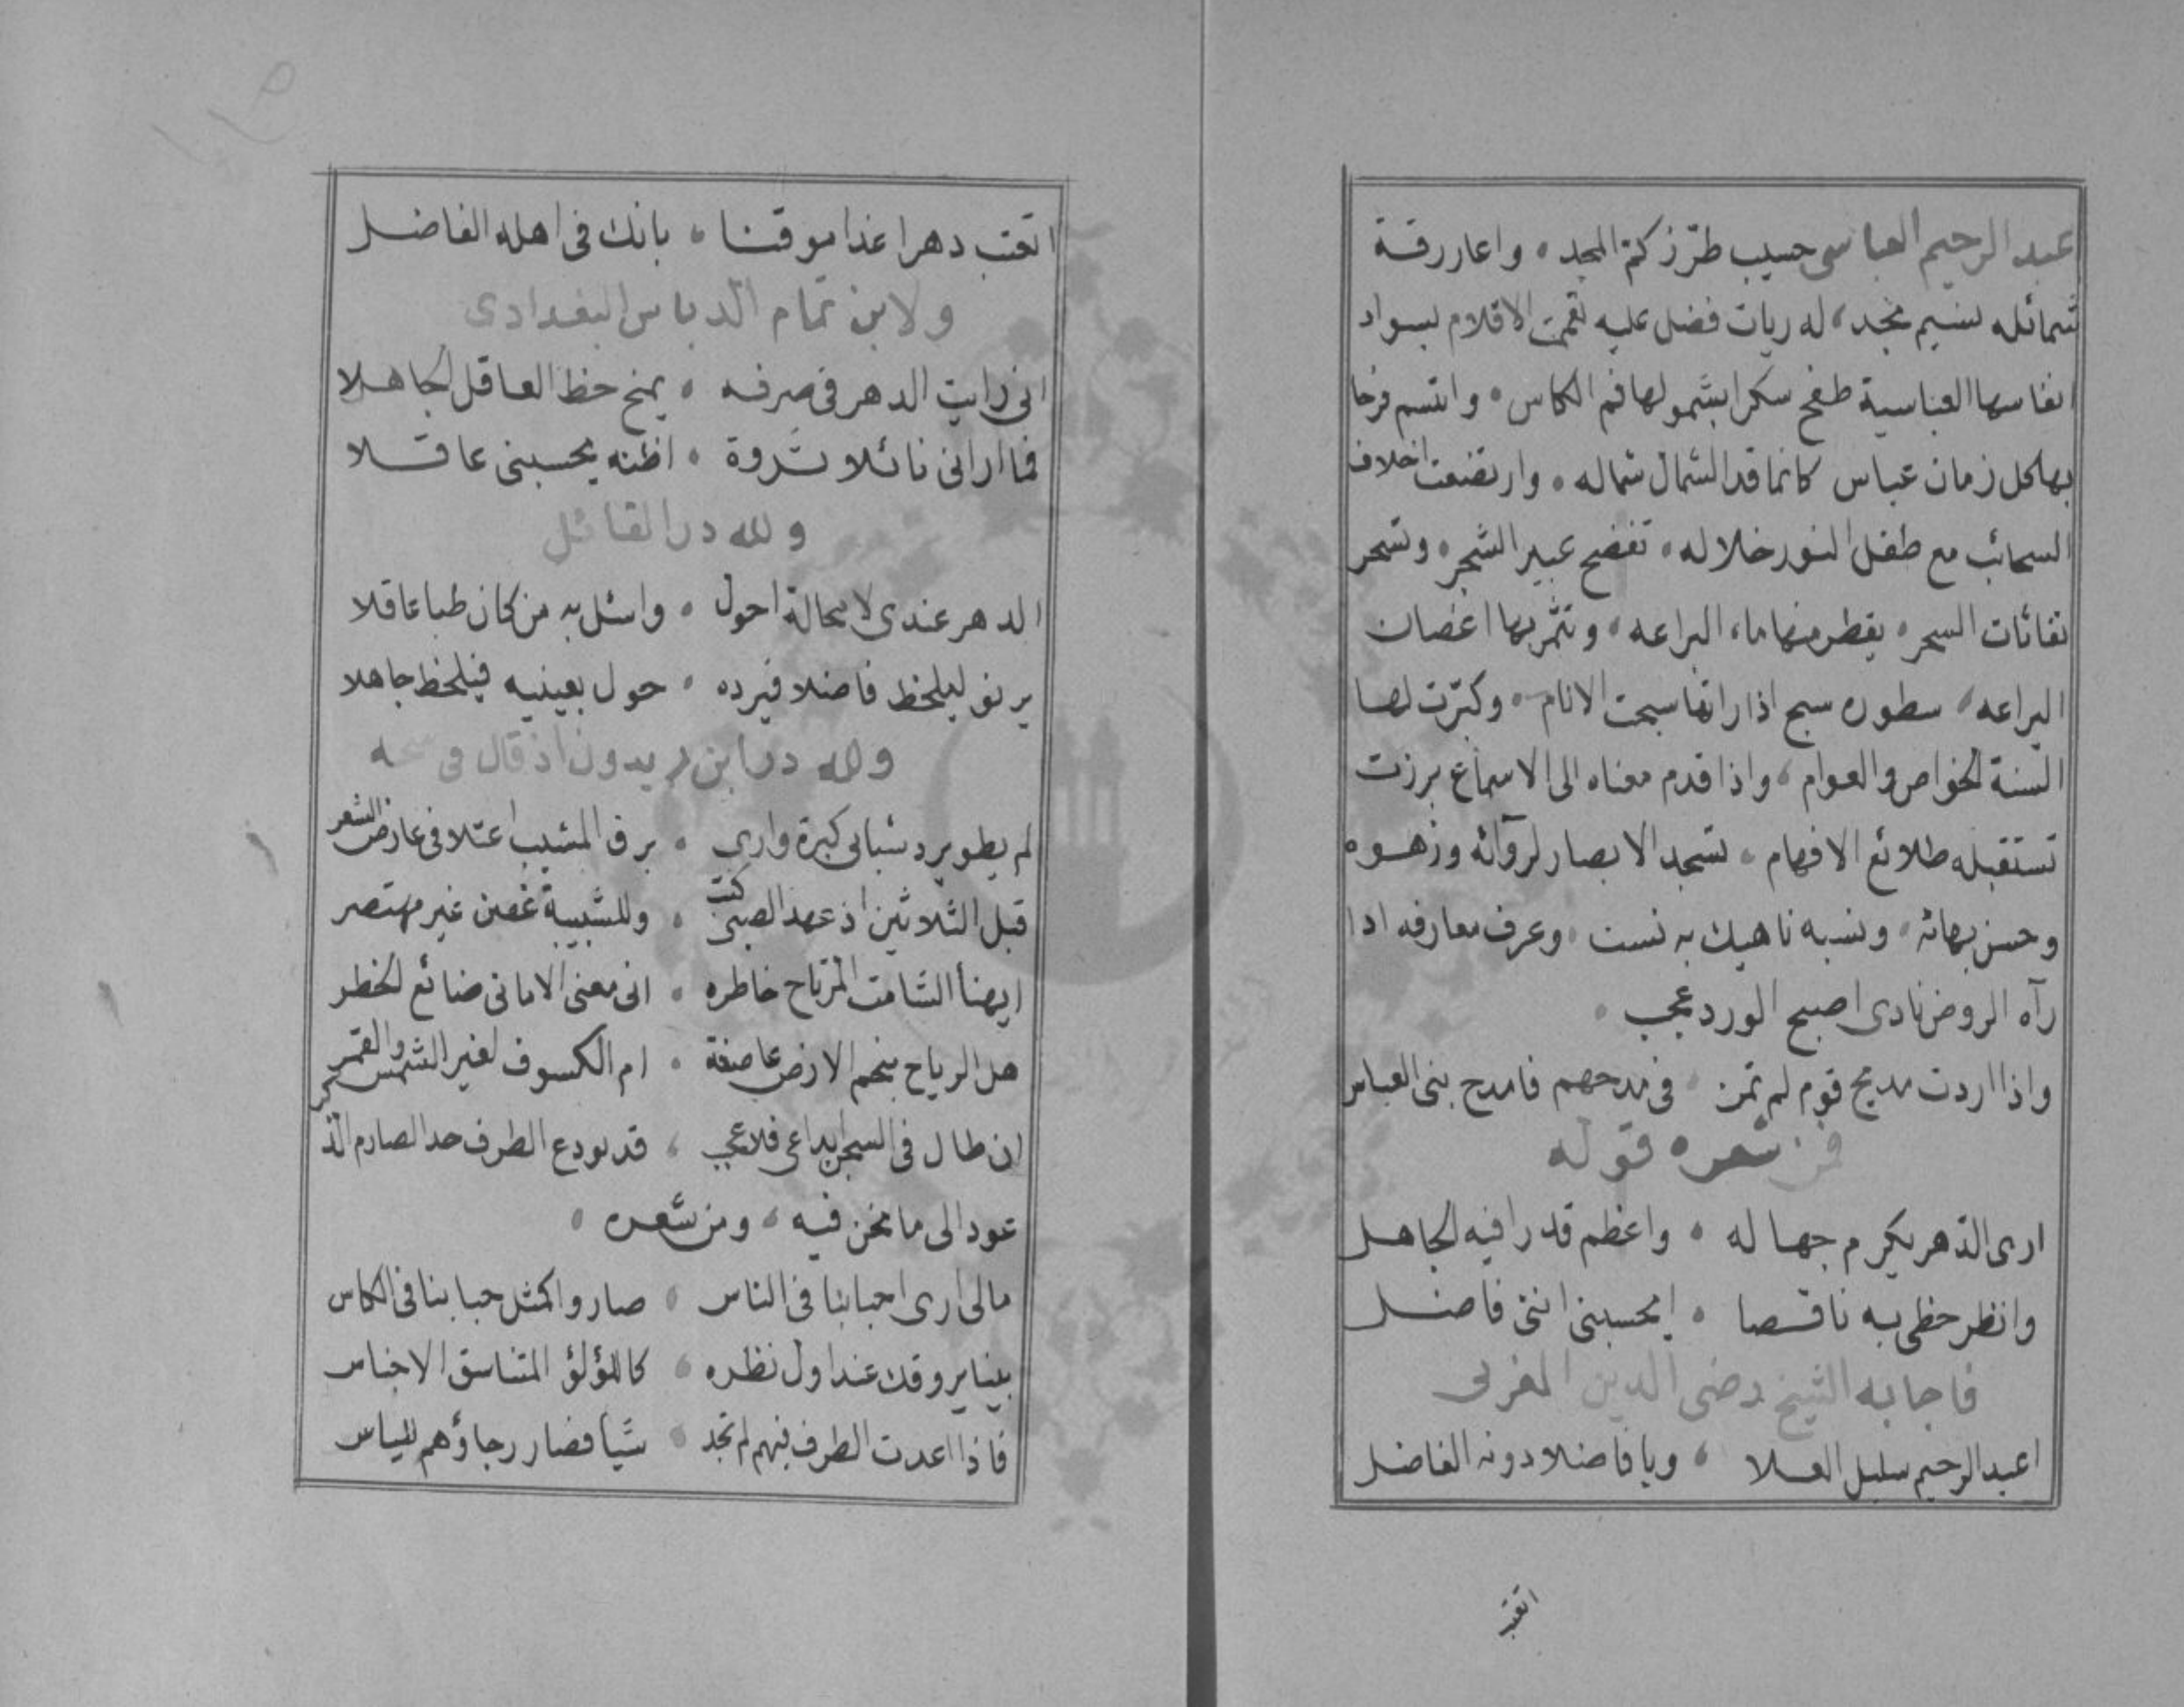 عبد الرحيم العباسى حسيب طرّز كمّ المجد ، واعار رقة
شمائله نسيم نجد ، له ريات فضل عليه تعممت الاقلام بسواد
انفاسها العباسية طفح سكرا بشمولها فم الكاس ، وابتسم فرحا
بها كل زمان عباس كانما قد الشمال شماله ، وارتضعت اخلاف
السحائب مع طفل النور خلاله ، تفضح عبير الشجر ، وتسحر
نفاثات السحر ، يقطر منها ماء البراعه ، وتثمر بها اغصان
اليراعه ، سطوره سبح اذا راتها سبحت الانام ، وكبّرت لها
السنة الخواص والعوام ، واذا قدم معناه الى الاسماع برزت
تستقبله طلائع الافهام ، تسجد الابصار لروآئه وزهوه
وحسن بهائه ، ونسبه ناهيك به نسب ، وعرف معارفه اذا
رآه الروض نادى اصبح الورد عجب ،
واذا اردت مديح قوم لم تمن ، فى مدحهم فامدح بنى العباس
فمن شعره قوله
ارى الدّهر يكرم جهاله ، واعظم قدرا فيه الجاهل
وانظر حظى به ناقصا ، ايحسبنى اننى فاضل
فاجابه الشيخ رضى الدين الغزى
اعبد الرحيم سليل العلا ، ويا فاضلا دونه الفاضل
اتعتب
اتعتب دهرا غدا موقنا ، بانك فى اهله الفاضل
ولابن تمام الدباس البغدادى
انى رايت الدهر فى صرفه ، يمنح حظ العاقل الجاهلا
فما ارانى نائلا ثروة ، اظنه يحسبنى عاقلا
ولله در القائل
الدهر عندى لا محالة احول ، واسئل به من كان طبا عاقلا
يرنو ليلحظ فاضلا فيرده ، حول بعينيه فيلحظ جاهلا
ولله در ابن زيدون اذ قال فى سجنه
لم يطو برد شبابى كبرة وارى ، برق المشيب اعتلا فى عارض الشعر
قبل الثلاثين اذ عهد الصبى كثب ، وللشبيبة غصن غير مهتصر
ايهنأ الشامت المرتاح خاطره ، انى معنى الامانى ضائع الخطر
هل الرياح بنجم الارض عاصفة ، ام الكسوف لغير الشمس والقمر
ان طال فى السجن ايداعى فلا عجب ، قد يودع الطرف حد الصارم الذكر
عود الى ما نحن فيه ، ومن شعره ،
مالى ارى احبابنا فى الناس ، صاروا كمثل حبابنا فى الكاس
بينا يروقك عند اول نظره ، كاللؤلؤ المتناسق الاجناس
فاذا اعدت الطرف فيهم لم تجد ، شيأ فصار رجاؤهم للياس